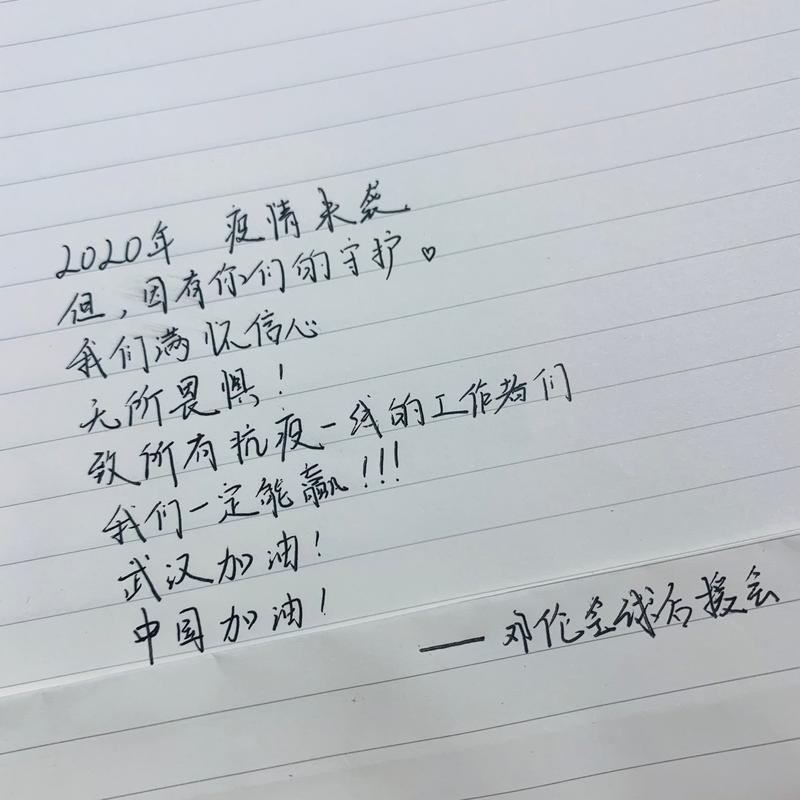 2020年 疫情来袭
但，因有你们的守护。♡
我们满怀信心
无所畏惧！
致所有抗疫一线的工作者们
我们一定能赢！！！
武汉加油！
中国加油！
——邓伦全球后援会